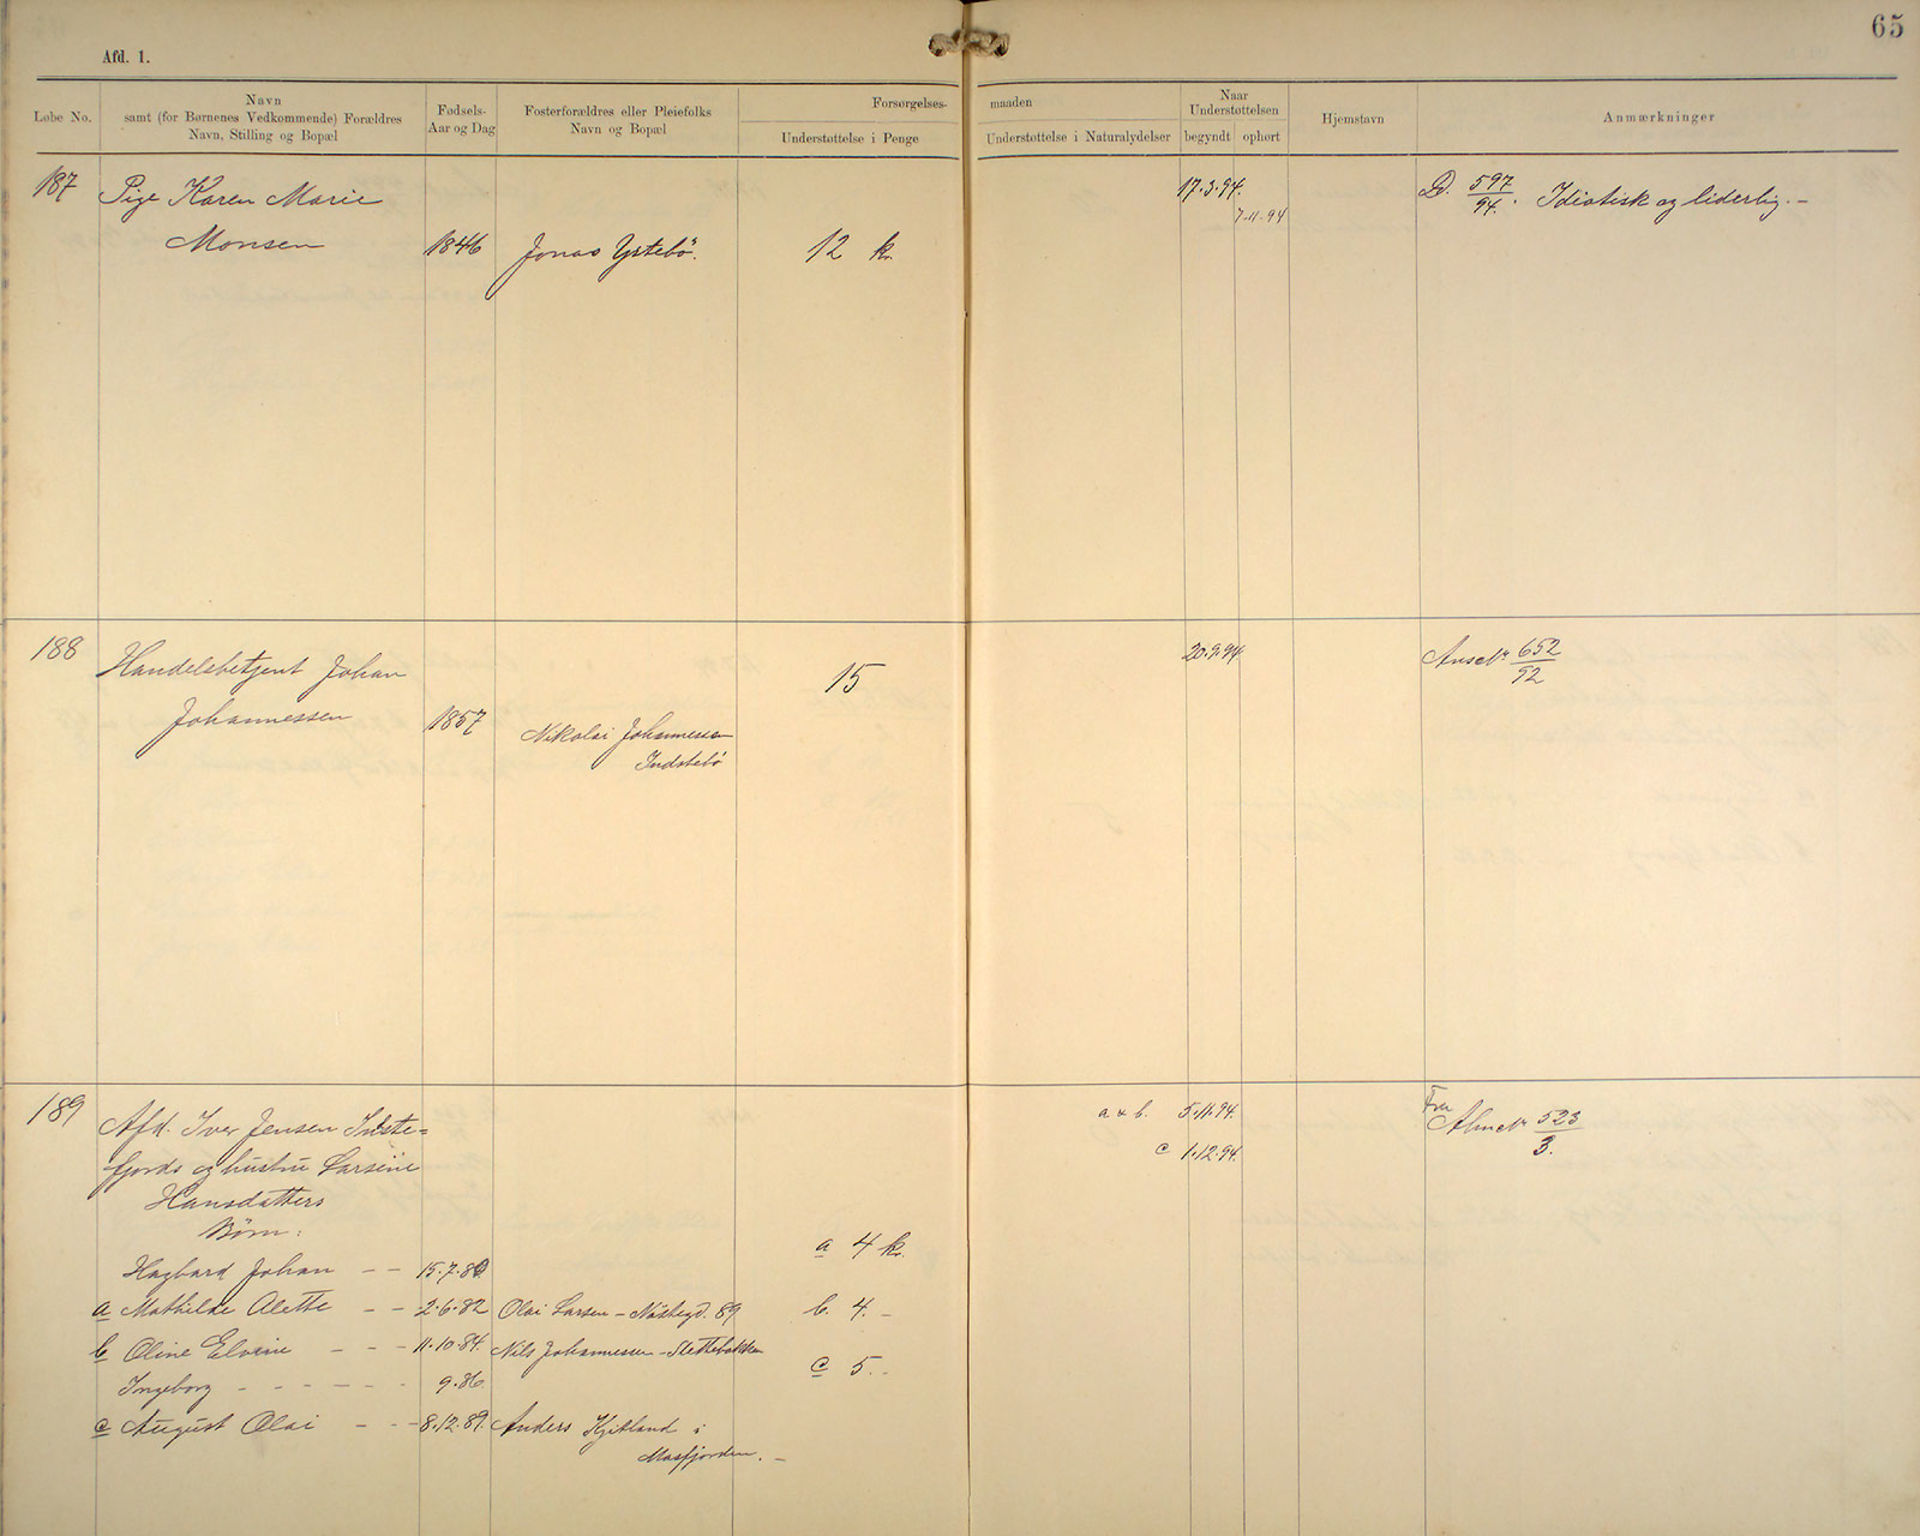 65
Afd. 1.
Løbe No.
Navn
samt (for Børnenes Vedkommende) Forældres
Navn, Stilling og Bopæl
Fødsels-
Aar og Dag
Fosterforældres eller Pleiefolks
Navn og Bopæl
Forsørgelses-
Understøttelse i Penge
maaden
Understøttelse i Naturalydelser
Naar
Understøttelsen
begyndt
ophørt
Hjemstavn
Anmærkninger
187 Pige Karen Marie 17.3.94. D. 597/94. Idiotisk og liderlig. –
7.11.94
Monsen 1846 Jonas Ystebö. 12 kr.
188 Handelsbetjent Johan 15 20.9.94 652/92
Johannessen 1857 Nikolai Johannessen
Indstebö
189 Afd. Iver Jensen a & b. 5.11.94. Fra 523/3.
fjords og hustru Larsine c 1.12.94.
Hansdatters
Börn:
a 4 kr.
Hagbard Johan – – 15.7.80
a Mathilde Alette – – 2.6.82 Olai Larsen – Nöstegd. 89 b. 4. –
b Oline Elvine – – – 11.10.84. Nils Johannessen – Slettebakken
c 5. -
Ingeborg - - - - - - 9.86.
c August Olai – - - 8.12.89. Anders Kjitland i
Masfjorden. –